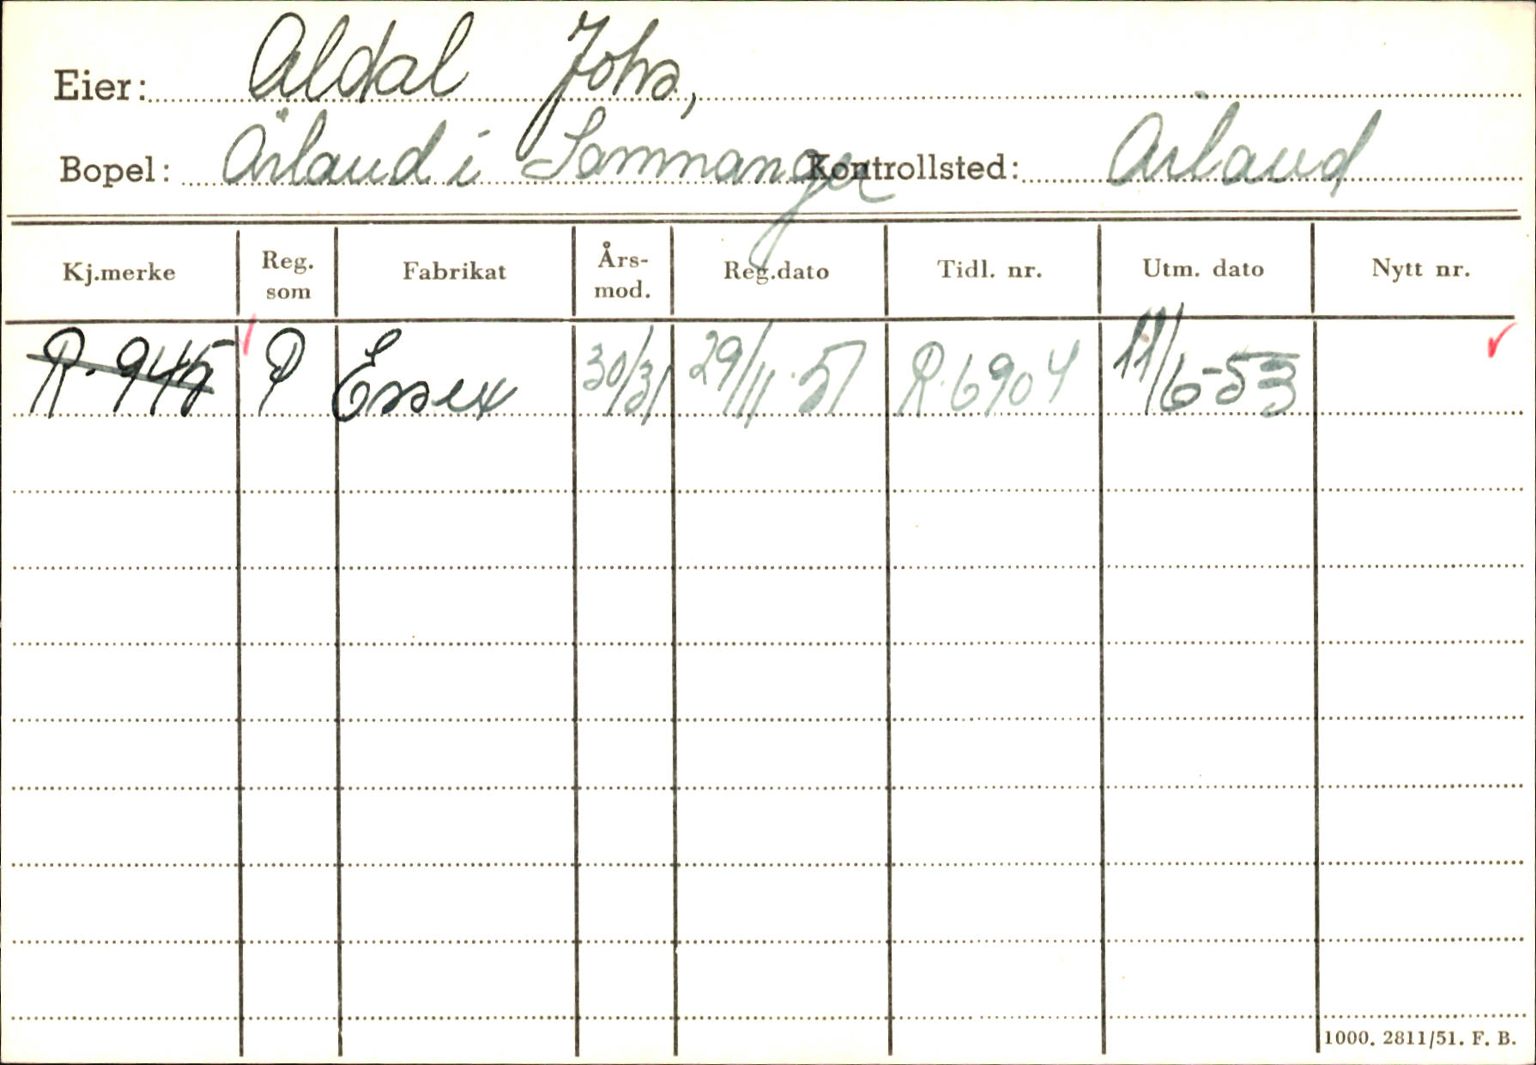 Eier: Aldal Johs,
Bopel: Årland i Samnanger Kontrollsted: Årland
Kj.merke Reg. som Fabrikat Års-mod. Reg.dato Tidl. nr. Utm. dato Nytt nr.
R-945 P Essex 30/31 29/11-51 R-6904 11/6-53
1000. 2811/51. F. B.